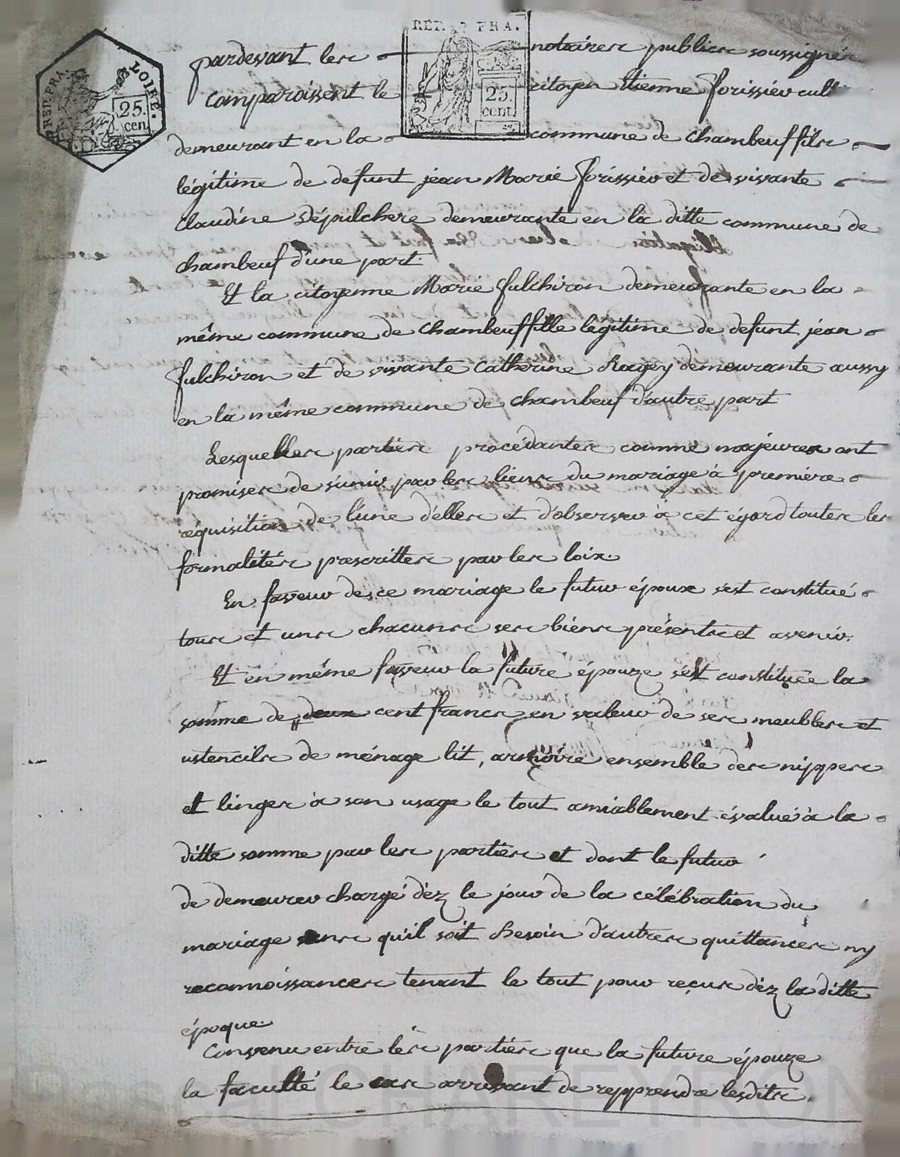 REP. FRA.
25.
cen.
LOIRE.
REP. FRA.
25
cent.
pardevant les notaires publics soussignés
comparoissent le citoyen Etienne forissier cult
demeurant en la commune de chambeuf fils
légitime de defunt jean Marie forissier et de vivante
Claudine Sépulchere demeurante en la ditte commune de
chambeuf d'une part
Et la citoyenne Marie fulchiron demeurante en la
même commune de chambeuf fille légitime de defunt jean
fulchiron et de vivante Catherine Ragey demeurante aussy
en la même commune de chambeuf d'autre part
Lesquelles parties procédantes comme majeures ont
promises de s'unir par les liens du mariage à première
réquisition de l'une d'elles et d'observer à cet égard toutes les
formalités prescrittes par les loix
En faveur de ce mariage le futur époux s'est constitué
tous et uns chacuns ses biens présents et avenir.
Et en même faveur la future épouze s'est constituée la
somme de deux cent francs en valeur de ses meubles et
ustencils de ménage lit, armoire ensemble des nippes
et linges à son usage le tout amiablement évalué à la
ditte somme par les parties et dont le futur
de demeurer chargé déz le jour de la célébration du
mariage sans qu'il soit besoin d'autres quittances ny
reconnoissances tenant le tout pour reçus déz la ditte
époque
Convenu entre les parties que la future épouze
la faculté le cas arrivant de repprendre lesdits
CHAREYRON